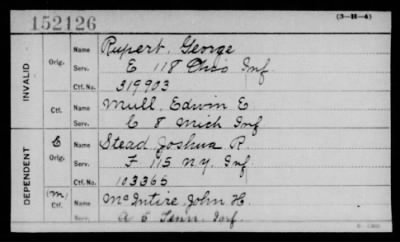 152126
(3-H-4)
INVALID
Orig.
Name Rupert, George
Serv. E 118 Ohio Inf
Ctf. No. 319903
Ctf.
Name Mull, Edwin E
Serv. C 8 Mich Inf
DEPENDENT
E
Orig.
Name Stead, Joshua P.
Serv. F 115 N.Y. Inf.
Ctf. No. 103365
(m)
Ctf.
Name McIntire, John H.
Serv. A 5 Tenn. Inf.